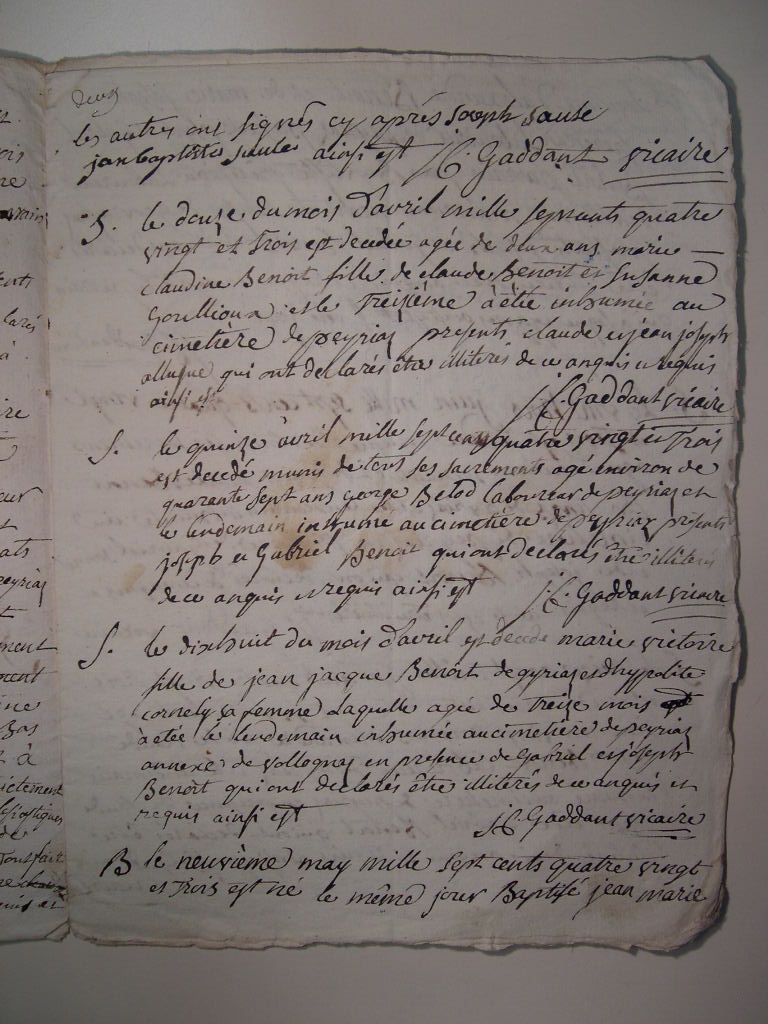 deux
les autres ont signés cy après joseph saule
jan baptiste saule ainsi est J C. Gaddant vicaire
S. le douze du mois d'avril mille septcents quatre
vingt et trois est decedée agée de deux ans marie
claudine Benoit fille de claude Benoit et Susanne
Goullioux et le treisième à été inhumée au
cimetière de peyriaz presents claude et jean joseph
qui ont declarés etre illiterés de ce anquis et requis
ainsi est J C. Gaddant vicaire
S. le quinze avril mille septcents quatre vingt et trois
est decedé munis de tous ses sacrements agé environ de
quarante sept ans george Betod laboureur de peyriaz et
le lendemain inhumé au cimetière de peyriaz presents
joseph et Gabriel Benoit qui ont declarés être illiterés
de ce anquis et requis ainsi est J C. Gaddant vicaire
S. le dixhuit du mois d'avril est decede marie victoire
fille de jean jacque Benoit de pyriaz et d'hypolite
cornely sa femme laquelle agée de treize mois
à etée le lendemain inhumée au cimetière de peyriaz
annexe de vollognaz en presence de Gabriel et joseph
Benoit qui ont declarés être illiterés de ce anquis et
requis ainsi est J C. Gaddant vicaire
B le neuvième may mille sept cents quatre vingt
et trois est né le même jour Baptisé jean marie